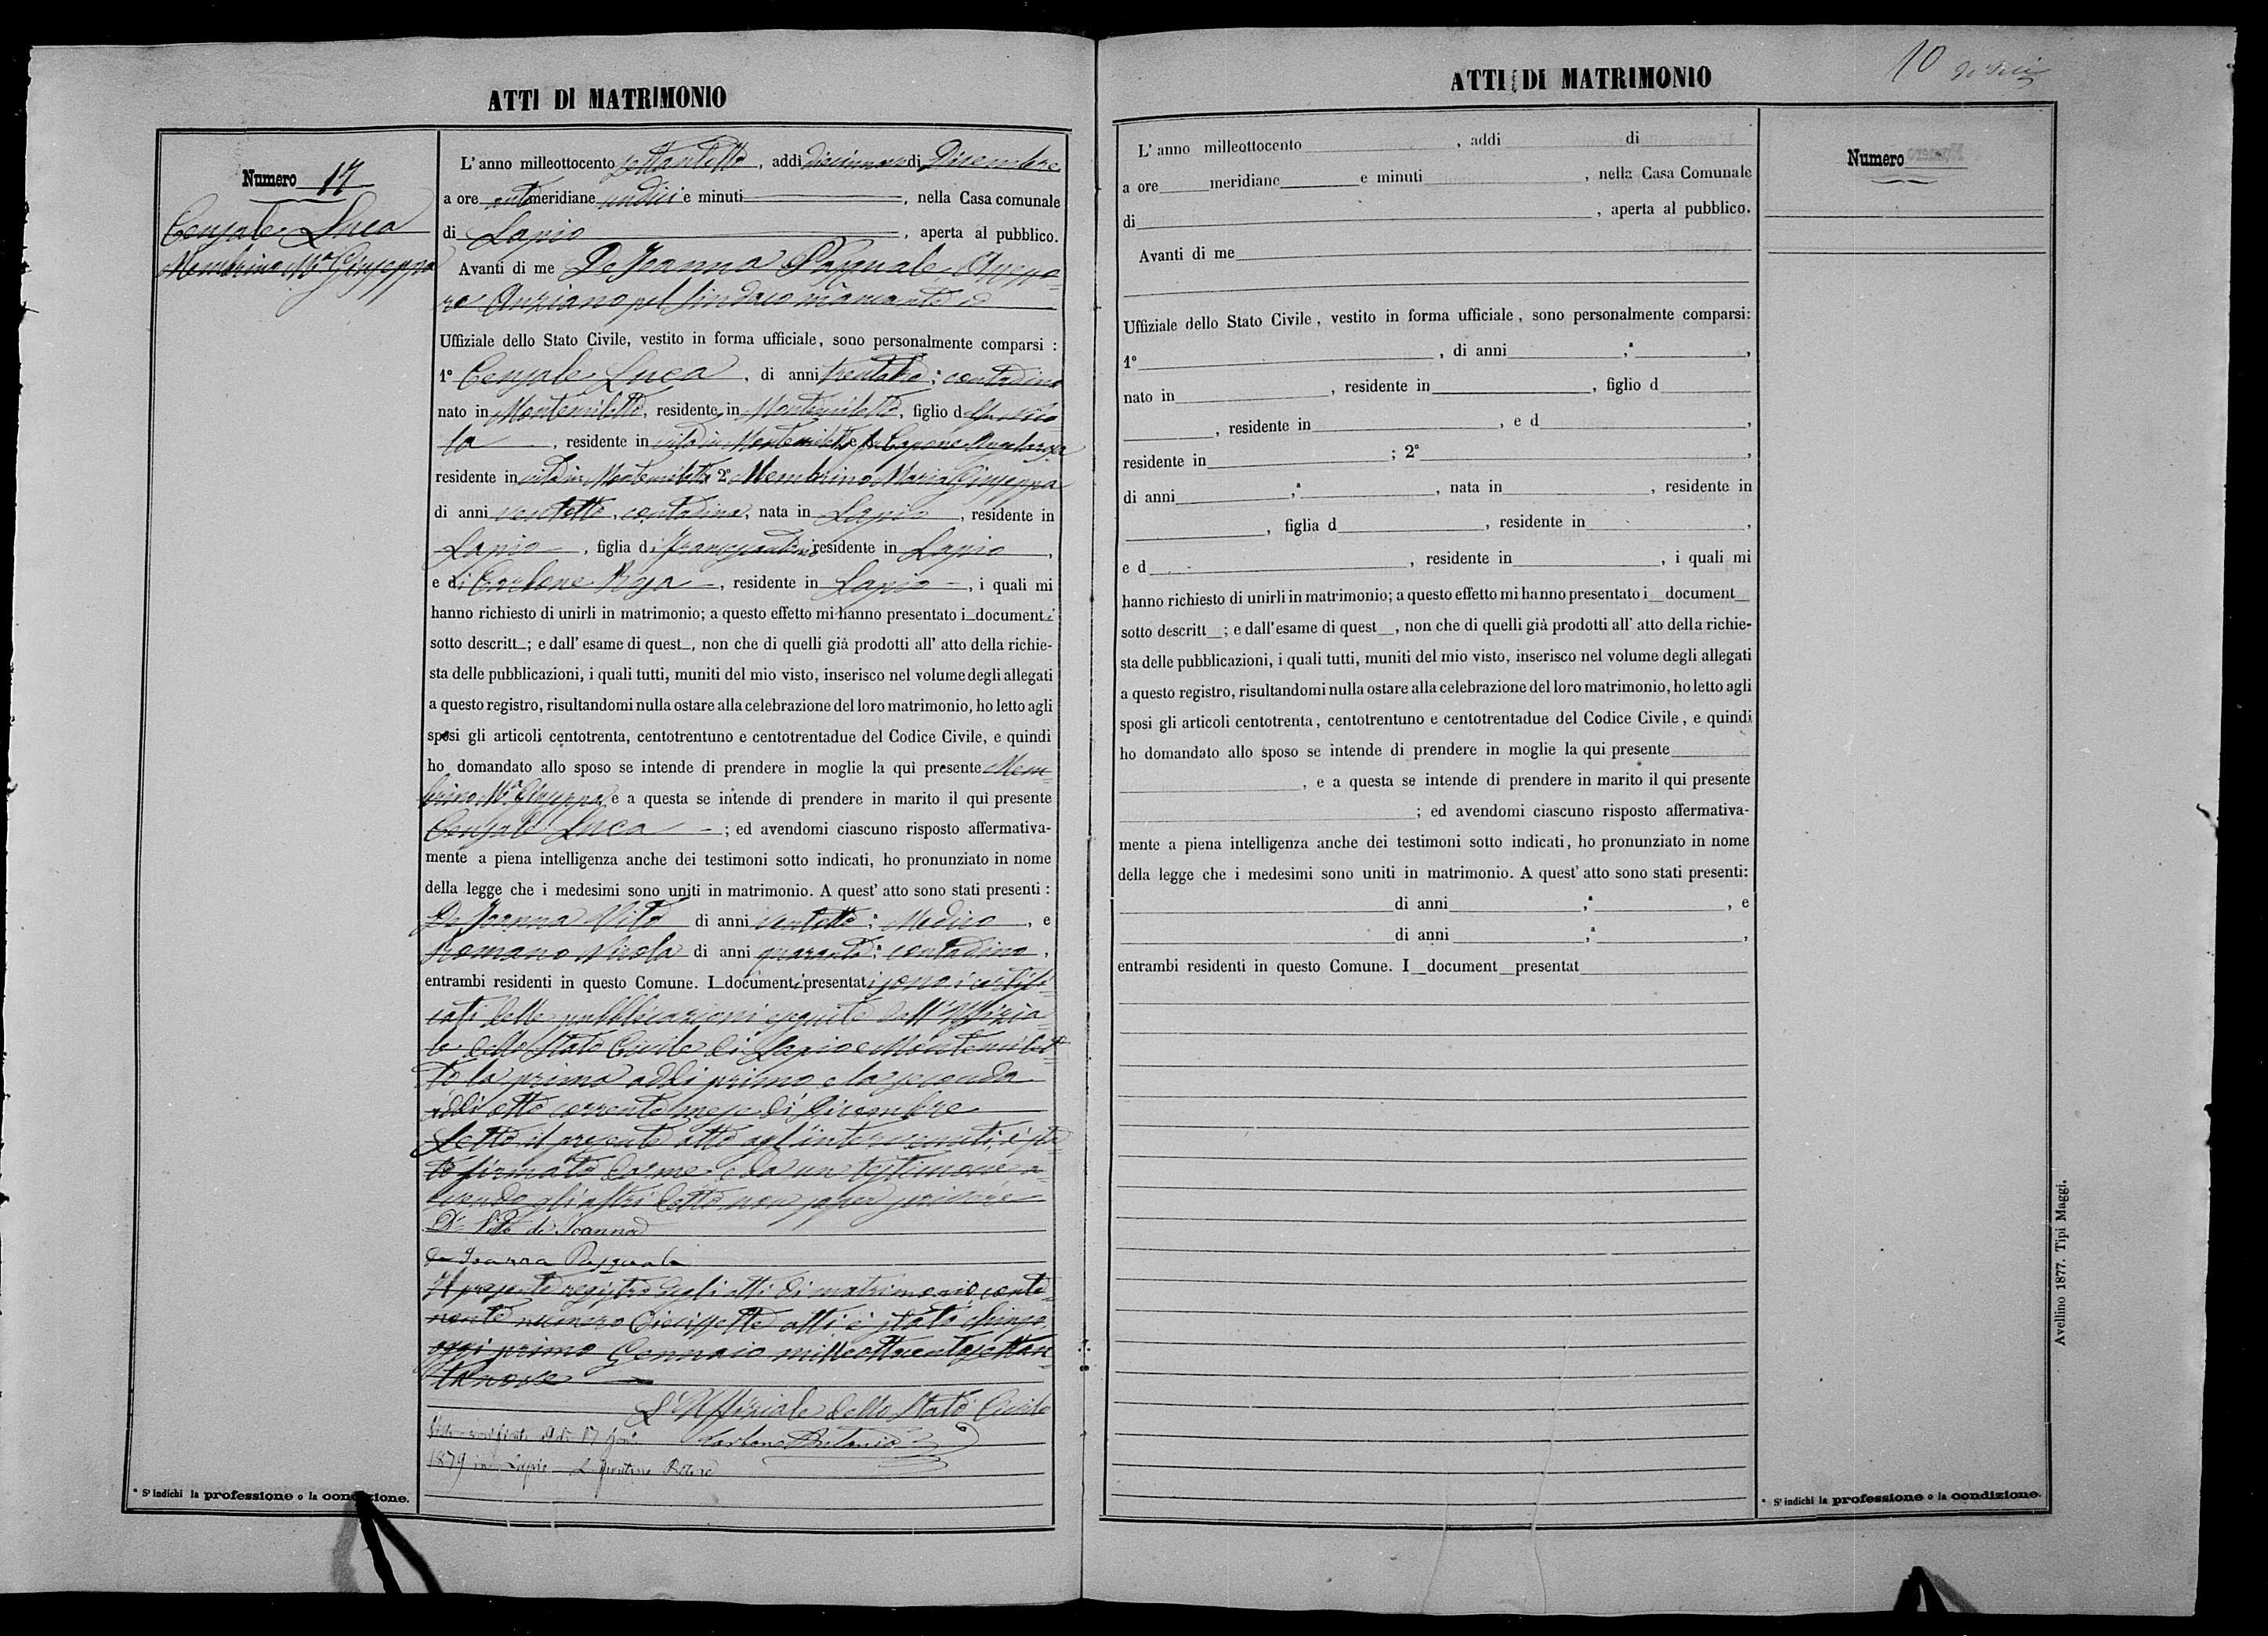 ATTI DI MATRIMONIO
Numero 17
Censale Luca
Membrino Mª Giuseppa
L'anno milleottocento settantotto, addì diecinnove di Dicembre
a ore anti meridiane undici e minuti, nella Casa comunale
di Lapio, aperta al pubblico.
Avanti di me De Joanna Pasquale Assesso-
re Anziano pel Sindaco mancante ed
Uffiziale dello Stato Civile, vestito in forma ufficiale, sono personalmente comparsi:
1º Censale Luca, di anni trentatre; contadino
nato in Montemiletto, residente in Montemiletto, figlio del fu Nico-
la, residente in vita in Montemiletto e fu Capone Angelarosa
residente in vita in Montemiletto 2º Membrino Maria Giuseppa
di anni ventotto, contadina, nata in Lapio, residente in
Lapio, figlia di residente in Lapio,
e di Carbone Rosa, residente in Lapio, i quali mi
hanno richiesto di unirli in matrimonio; a questo effetto mi hanno presentato i documenti
sotto descritt; e dall'esame di quest, non che di quelli già prodotti all'atto della richie-
sta delle pubblicazioni, i quali tutti, muniti del mio visto, inserisco nel volume degli allegati
a questo registro, risultandomi nulla ostare alla celebrazione del loro matrimonio, ho letto agli
sposi gli articoli centotrenta, centotrentuno e centotrentadue del Codice Civile, e quindi
ho domandato allo sposo se intende di prendere in moglie la qui presente Mem-
brino Mª Giuseppa, e a questa se intende di prendere in marito il qui presente
Censale Luca; ed avendomi ciascuno risposto affermativa-
mente a piena intelligenza anche dei testimoni sotto indicati, ho pronunziato in nome
della legge che i medesimi sono uniti in matrimonio. A quest'atto sono stati presenti:
De Joanna Vito di anni ventotto; Medico, e
Romano Nicola di anni quaranta; contadino,
entrambi residenti in questo Comune. I documenti presentati sono i certifi-
cati delle pubblicazioni eseguite dall'Uffizia-
le dello Stato Civile di Lapio e Montemilet-
to, la prima addì primo e la seconda
addì otto corrente mese di Dicembre
Letto il presente atto agl'intervenuti, è sta-
to firmato da me e da un testimone a-
vendo gli altri detto non saper scrivere
Dr Vito de Joanna
de Joanna Pasquale
Il presente registro degli atti di matrimonio conte-
nente numero Diecissette atti è stato chiuso
oggi primo Gennaio milleottocentosettan-
tanove
L'Uffiziale dello Stato Civile
Carbone Antonio
1879 in Lapio
* S'indichi la professione o la condizione.
ATTI DI MATRIMONIO
10 dieci
Numero
L'anno milleottocento, addì di
a ore meridiane e minuti, nella Casa Comunale
di, aperta al pubblico.
Avanti di me
Uffiziale dello Stato Civile, vestito in forma ufficiale, sono personalmente comparsi:
1º, di anni,*,
nato in, residente in, figlio d
, residente in, e d,
residente in; 2º,
di anni,*, nata in, residente in
, figlia d, residente in,
e d, residente in, i quali mi
hanno richiesto di unirli in matrimonio; a questo effetto mi hanno presentato i document
sotto descritt; e dall'esame di quest, non che di quelli già prodotti all'atto della richie-
sta delle pubblicazioni, i quali tutti, muniti del mio visto, inserisco nel volume degli allegati
a questo registro, risultandomi nulla ostare alla celebrazione del loro matrimonio, ho letto agli
sposi gli articoli centotrenta, centotrentuno e centotrentadue del Codice Civile, e quindi
ho domandato allo sposo se intende di prendere in moglie la qui presente
, e a questa se intende di prendere in marito il qui presente
; ed avendomi ciascuno risposto affermativa-
mente a piena intelligenza anche dei testimoni sotto indicati, ho pronunziato in nome
della legge che i medesimi sono uniti in matrimonio. A quest'atto sono stati presenti:
di anni,*, e
di anni,*,
entrambi residenti in questo Comune. I document presentat
* S'indichi la professione o la condizione.
Avellino 1877. Tipi Maggi.